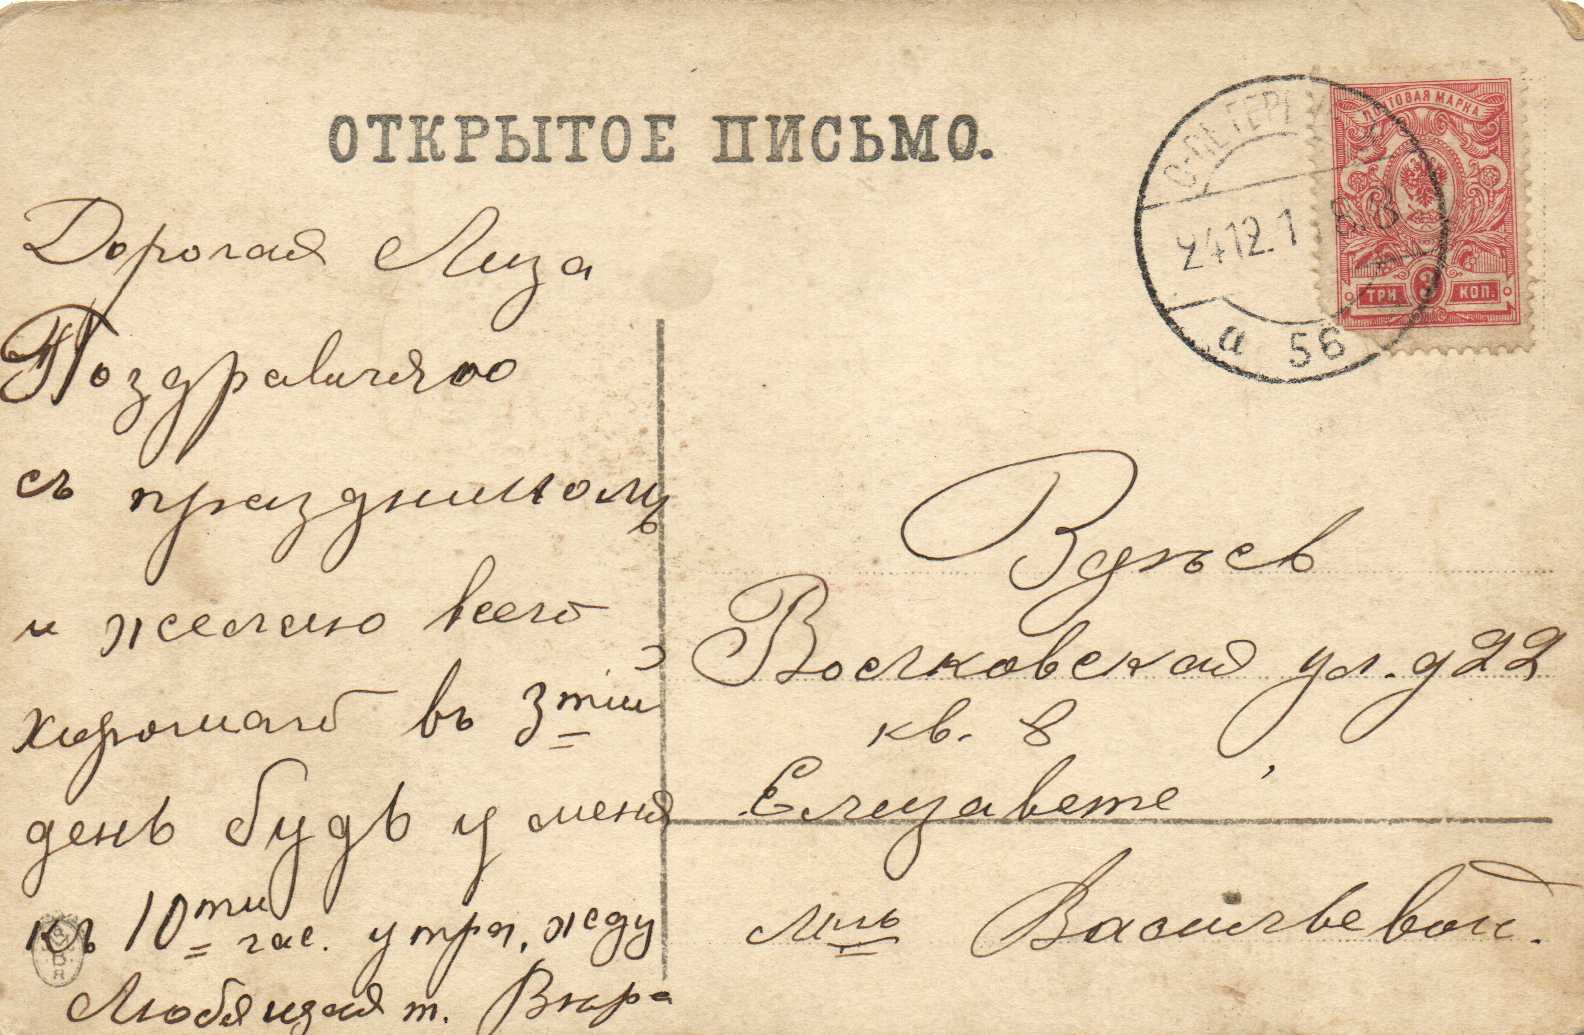 ОТКРЫТОЕ ПИСЬМО.
ПОЧТОВАЯ МАРКА
ТРИ 3 КОП.
С-ПЕТЕРБУРГ
24 12.1
а 56
Дорогая Лиза
Поздравляю
съ праздникомъ
и желаю всего
хорошаго въ 3тій
день будь у меня
къ 10ти час. утра, жду
Любящая т. Вѣра
Здѣсь
Волковская ул. д 22
кв. 8
Елизавете
Васильевой.